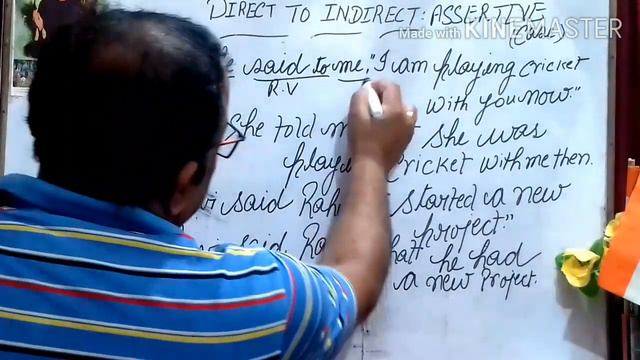 DIRECT TO INDIRECT: ASSERTIVE
Made with KINEMASTER
said to me, "I am playing cricket
R.V
with you now."
She told she was
cricket with me then.
said started a new
project."
said he had
a new project.